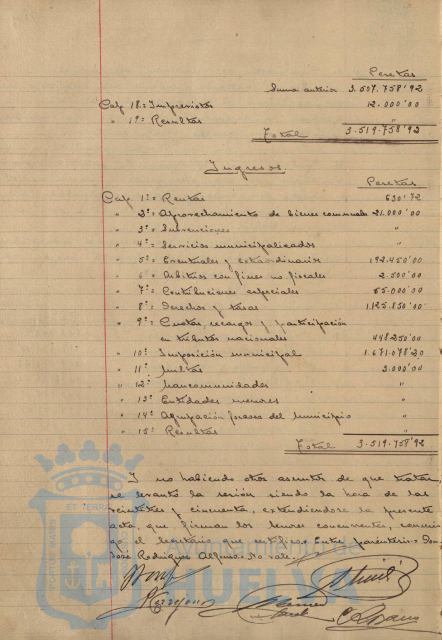 Pesetas
Suma anterior 3.507.758'92
Cap 18º= Imprevistos 12.000'00
" 19= Resultas "
Total 3.519.758'92
Ingresos
Pesetas
Cap 1º= Rentas 630'72
" 2º= Aprovechamiento de bienes comunales 21.000'00
" 3º= Subvenciones "
" 4º= Servicios municipalizados "
" 5º= Eventuales y extraordinarios 192.450'00
" 6º= Arbitrios con fines no fiscales 2.500'00
" 7º= Contribuciones especiales 55.000'00
" 8º= Derechos y tasas 1.125.850'00
" 9º= Cuotas, recargos y participación
en tributos nacionales 448.250'00
" 10º Imposición municipal 1.671.078'20
" 11º Multas 3.000'00
" 12º Mancomunidades "
" 13º Entidades menores "
" 14º Agrupación forzosa del municipio "
" 15º Resultas "
Total 3.519.758'92
Y no habiendo otros asuntos de que tratar,
se levantó la sesión siendo la hora de las
veintitres y cincuenta, extendiendose la presente
acta, que firman los señores concurrentes, conmi
go el secretario que certifico= Entre parentesis= Don
José Rodriguez Alfonso= No vale.
HUELVA